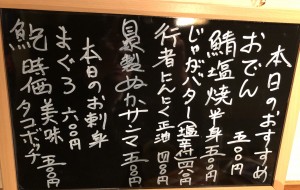 本日のおすすめ
おでん 五〇〇
鯖塩焼 半身 五〇〇
じゃがバター(塩辛付) 四八〇
行者にんにく正油 四八〇
自家製ぬかサンマ 五〇〇
本日のお刺身
まぐろ 六〇〇
鮑 時価 美味 タコボッチ 五〇〇